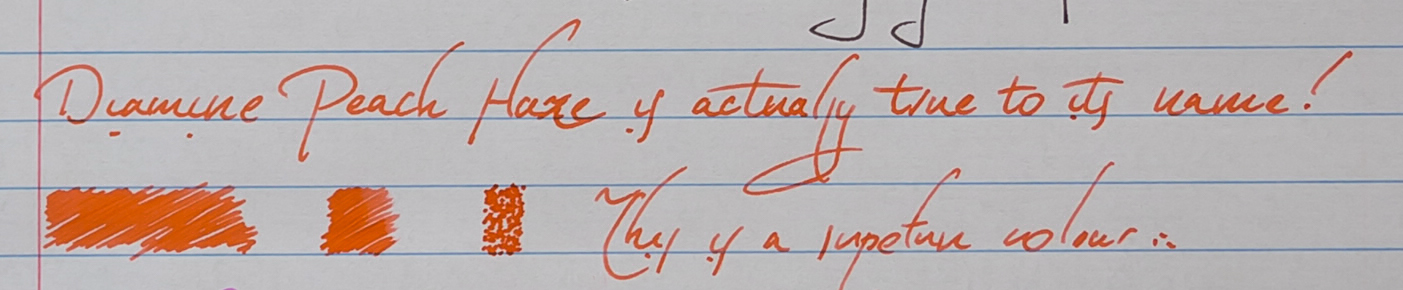 Diamine Peach Haze is actually true to its name!
This is a superb colour :.